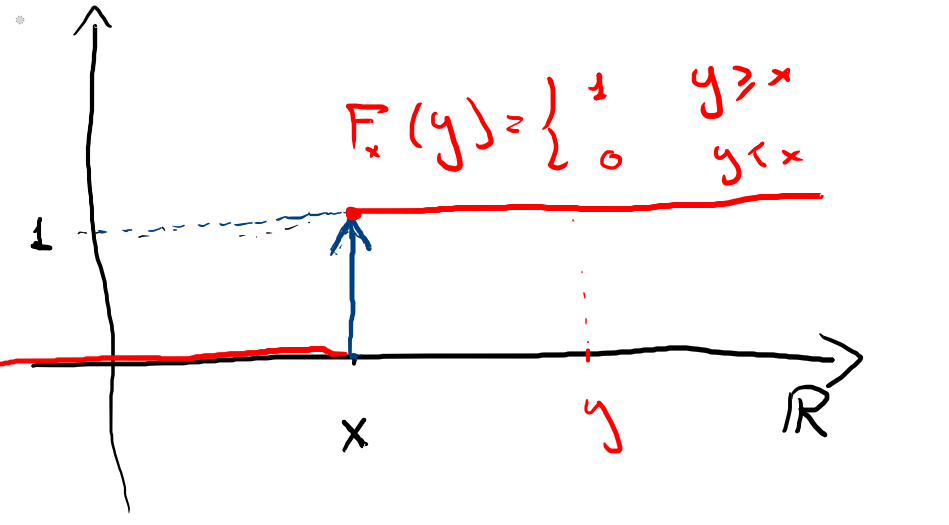 F_x (y) = { 1 y ≥ x
0 y < x
1
x
y
ℝ